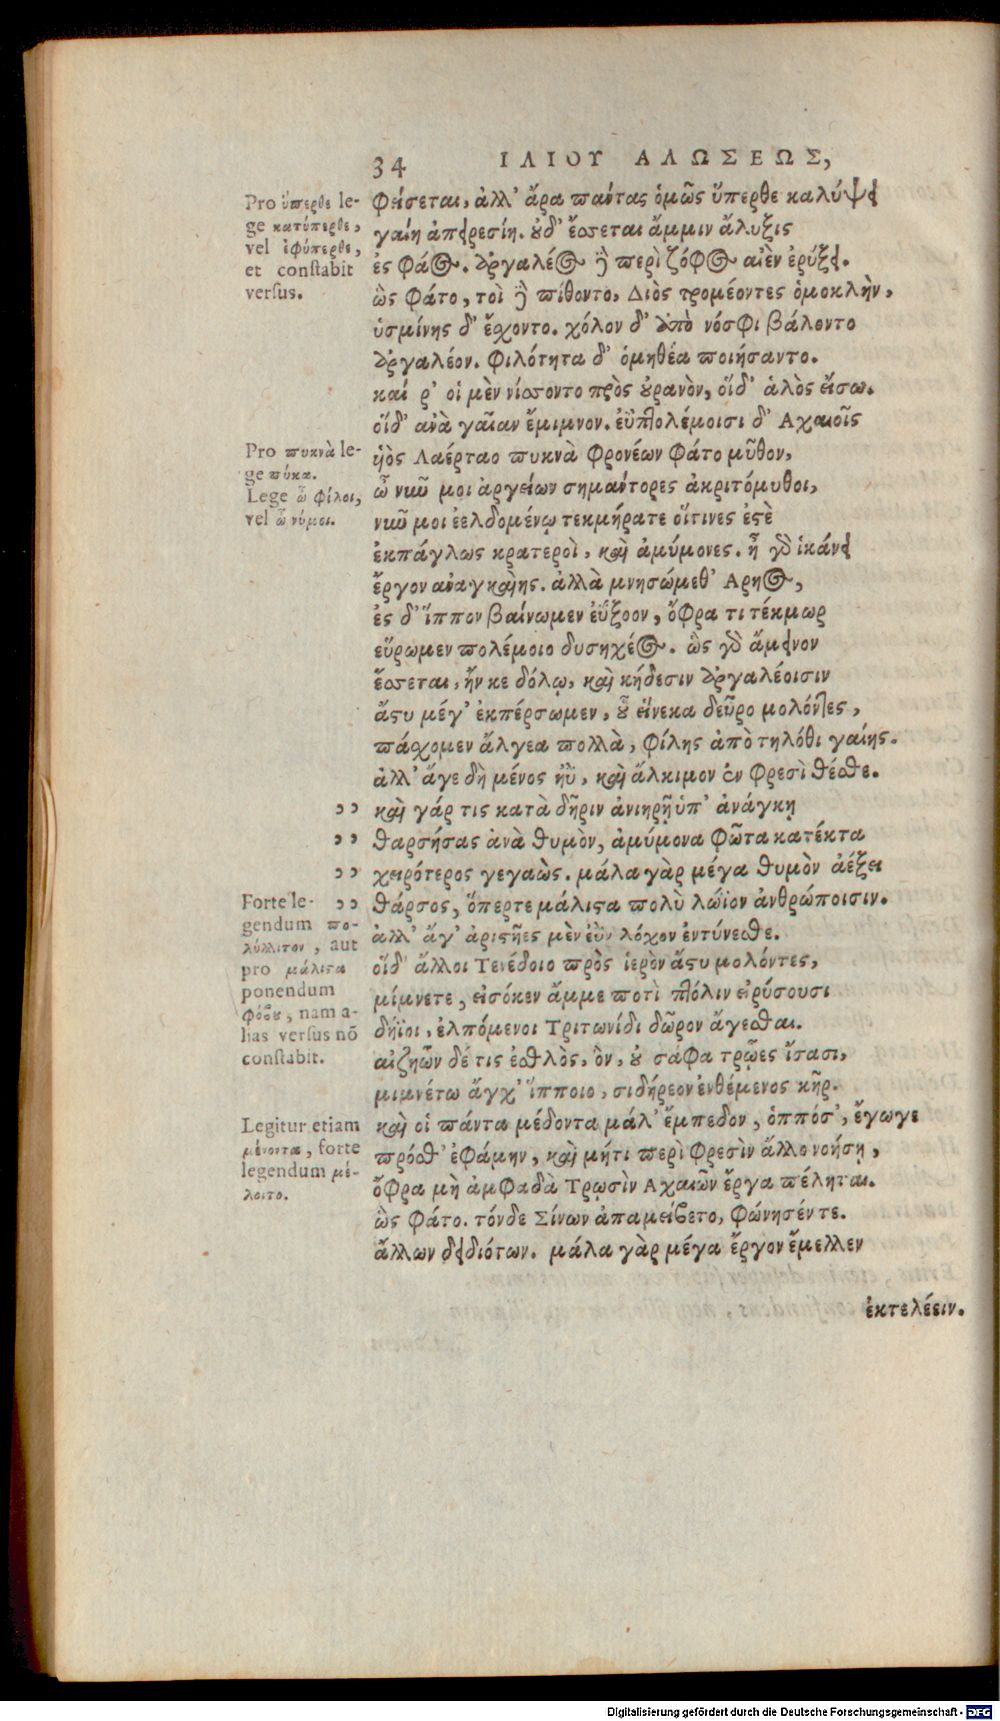 34 ΙΛΙΟΥ ΑΛΩΣΕΩΣ,
Pro ὕπερθε le-
ge κατύπερθε,
vel ἐφύπερθε,
et conſtabit
verſus.
φείσεται, ἀλλ' ἄρα πάντας ὁμῶς ὕπερθε καλύψει
γαίη ἀπειρεσίη. οὐδ' ἔσεται ἄμμιν ἄλυξις
ἐς φάος. ἀργαλέος δὲ περὶ ζόφος αἰὲν ἐρύξει.
ὣς φάτο, τοὶ δὲ πίθοντο, Διὸς τρομέοντες ὁμοκλὴν,
ὑσμίνης δ' ἔσχοντο. χόλον δ' ἀπὸ νόσφι βάλοντο
ἀργαλέον. φιλότητα δ' ὁμηθέα ποιήσαντο.
καί ρ' οἱ μὲν νίσοντο πρὸς οὐρανὸν, οἵδ' ἁλὸς εἴσω.
οἵδ' ἀνὰ γαῖαν ἔμιμνον. ἐϋπτολέμοισι δ' Αχαιοῖς
Pro πυκνὰ le-
ge πύκα.
Lege ὦ φίλοι,
vel ὦ νύμοι.
ὑιὸς Λαέρταο πυκνὰ φρονέων φάτο μῦθον,
ὦ νῦν μοι ἀργείων σημάντορες ἀκριτόμυθοι,
νῦν μοι ἐελδομένῳ τεκμήρατε οἵτινες ἐστὲ
ἐκπάγλως κρατεροὶ, καὶ ἀμύμονες. ἦ γὰρ ἱκάνει
ἔργον ἀναγκαίης. ἀλλὰ μνησώμεθ' Αρηος,
ἐς δ' ἵππον βαίνωμεν ἐΰξοον, ὄφρα τι τέκμωρ
εὕρωμεν πολέμοιο δυσηχέος. ὣς γὰρ ἄμεινον
ἔσσεται, ἤν κε δόλῳ, καὶ κήδεσιν ἀργαλέοισιν
ἄστυ μέγ' ἐκπέρσωμεν, οὗ εἵνεκα δεῦρο μολόντες,
πάσχομεν ἄλγεα πολλὰ, φίλης ἀπὸ τηλόθι γαίης.
ἀλλ' ἄγε δὴ μένος ἠῢ, καὶ ἄλκιμον ἐν φρεσὶ θέσθε.
,, καὶ γάρ τις κατὰ δῆριν ἀνιηρῇ ὑπ' ἀνάγκῃ
,, θαρσήσας ἀνὰ θυμὸν, ἀμύμονα φῶτα κατέκτα
,, χειρότερος γεγαὼς. μάλα γὰρ μέγα θυμὸν ἀέξει
,, θάρσος, ὅπερτε μάλιστα πολὺ λώϊον ἀνθρώποισιν.
Forte le-
gendum πο-
λύλλιτον, aut
pro μάλιστα
ponendum
φόβου, nam a-
lias verſus nō
conſtabit.
ἀλλ' ἄγ' ἀριστῆες μὲν ἐῢν λόχον ἐντύνεσθε.
οἵδ' ἄλλοι Τενέδοιο πρὸς ἱερὸν ἄστυ μολόντες,
μίμνετε, εἰσόκεν ἄμμε ποτὶ πτόλιν εἰρύσουσι
δήϊοι, ἐλπόμενοι Τριτωνίδι δῶρον ἄγεσθαι.
αἰζηῶν δέ τις ἐσθλὸς, ὃν, οὐ σάφα τρῶες ἴσασι,
μιμνέτω ἄγχ' ἵπποιο, σιδήρεον ἐνθέμενος κῆρ.
Legitur etiam
μένοντα, forte
legendum μέ-
λοιτο.
καὶ οἱ πάντα μέδοντα μάλ' ἔμπεδον, ὁππόσ', ἔγωγε
πρόσθ' ἐφάμην, καὶ μήτι περὶ φρεσὶν ἄλλο νοήσῃ,
ὄφρα μὴ ἀμφαδὰ Τρωσὶν Αχαιῶν ἔργα πέληται.
ὣς φάτο. τόνδε Σίνων ἀπαμείβετο, φώνησέν τε.
ἄλλων δειδιότων. μάλα γὰρ μέγα ἔργον ἔμελλεν
ἐκτελέειν.
Digitalisierung gefördert durch die Deutsche Forschungsgemeinschaft - DFG